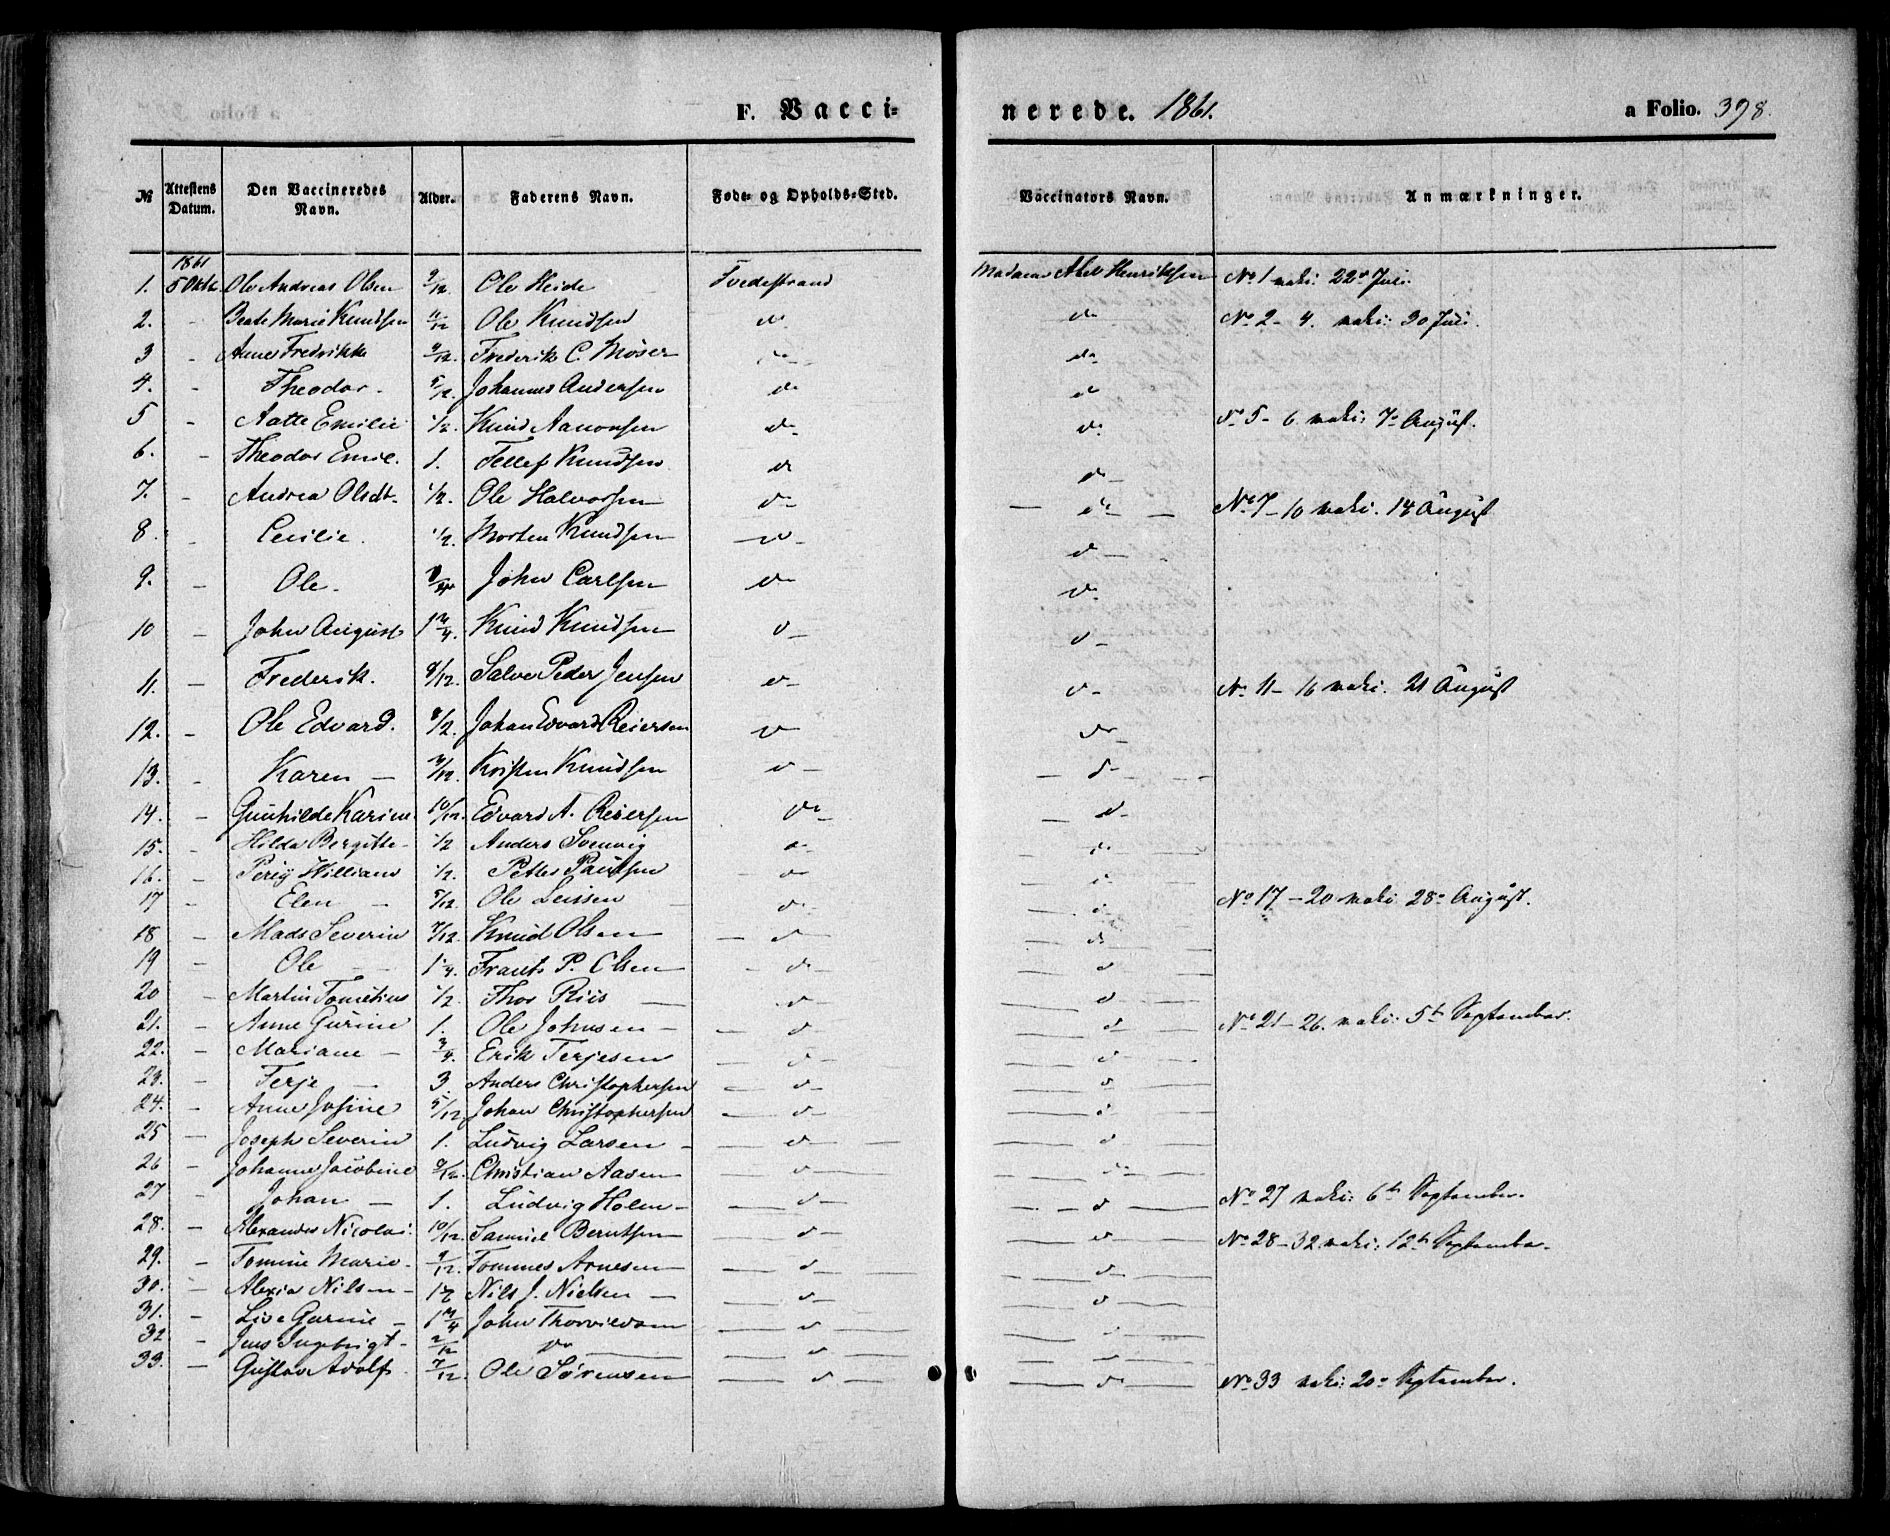 F. Vacci=
nerede. 1861.
a Folio. 398.
№ Attestens Datum. Den Vaccineredes Navn. Alder. Faderens Navn. Føde= og Opholds=Sted. Vaccinators Navn. Anmærkninger.
1861
1. 5 Oktb. Ole Andreas Olsen 9/12 Ole Heide Tvedestrand Madame Henriksen No 1 vaki: 22de Juli.
2. - Beate Marie Knudsen 11/12 Ole Knudsen do do No 2 - 4. vaki: 30 Juli.
3 - Anne Fredrikke 9/12. Frederik C. Møser do do
4. - Theodor. 5/12. Johannes Andersen do do
5 - Aatte Emilie 1/2. Knud Aanonsen do do No 5 - 6 vaki: 7de August.
6. - Theodor Emil. 1. Tellef Knudsen do do
7. - Andrea Olsdt. 1/2. Ole Halvorsen do do No 7 - 10 vaki. 14 August
8. - Cecilie. 1/2. Morten Knudsen do do
9. - Ole. 3/4 John Carlsen do do
10 - John August 1 3/4. Knud Knudsen do do
11. - Frederik. 9/12. Salve Peder Jensen do do No 11 - 16 vaki. 21 August
12. - Ole Edvard. 8/12. Johan Edvard Reiersen do do
13. - Karen - 3/12. Kristen Knudsen do do
14. - Gunhilde Karine 10/12. Edvard A. Reiersen do do
15. - Hilda Bergitte 1/2 Anders Svenvig do do
16. - William 1/2. Petter Paulsen do do
17 - Elen - 5/12 Ole Leissen do do No 17 - 20 vaki 28de August.
18 - Mads Severin 7/12. Knud Olsen do do
19 - Ole 1 1/4. Frants P. Olsen do do
20 - Martin 1/2. Thor Riis do do
21. - Anne Gurine 1. Ole Johnsen - do do No 21 - 26. vaki: 5te September.
22. - Mariane - 3/4. Erik Terjesen do do
23. - Terje - 3. Anders Christophersen do do
24. - Anne Josine 5/12 Johan Christophersen do do
25 - Joseph Severin 1. Ludvig Larsen - do do
26 - Johanne Jacobine 9/12. Christian Aasen do do
27 - Johan - 1. Ludvig Holm - do do No 27 vaki: 6te September.
28. - Alexander Nicolai 10/12 Samuel Berntsen do do No 28 - 32 vaki: 12te September.
29. - Tomine Marie 9/12. Tommes Arnesen do do
30. - Alexia Nilsen - 1 1/2 Nils J. Nielsen - do do
31. - Live Gurine - 1 3/4 John do do
32 - Jens Ingebrigt 2/12 do do do
33. - Gustav Adolf 7/12. Ole Sørensen do do No 33 vaki: 20de September.